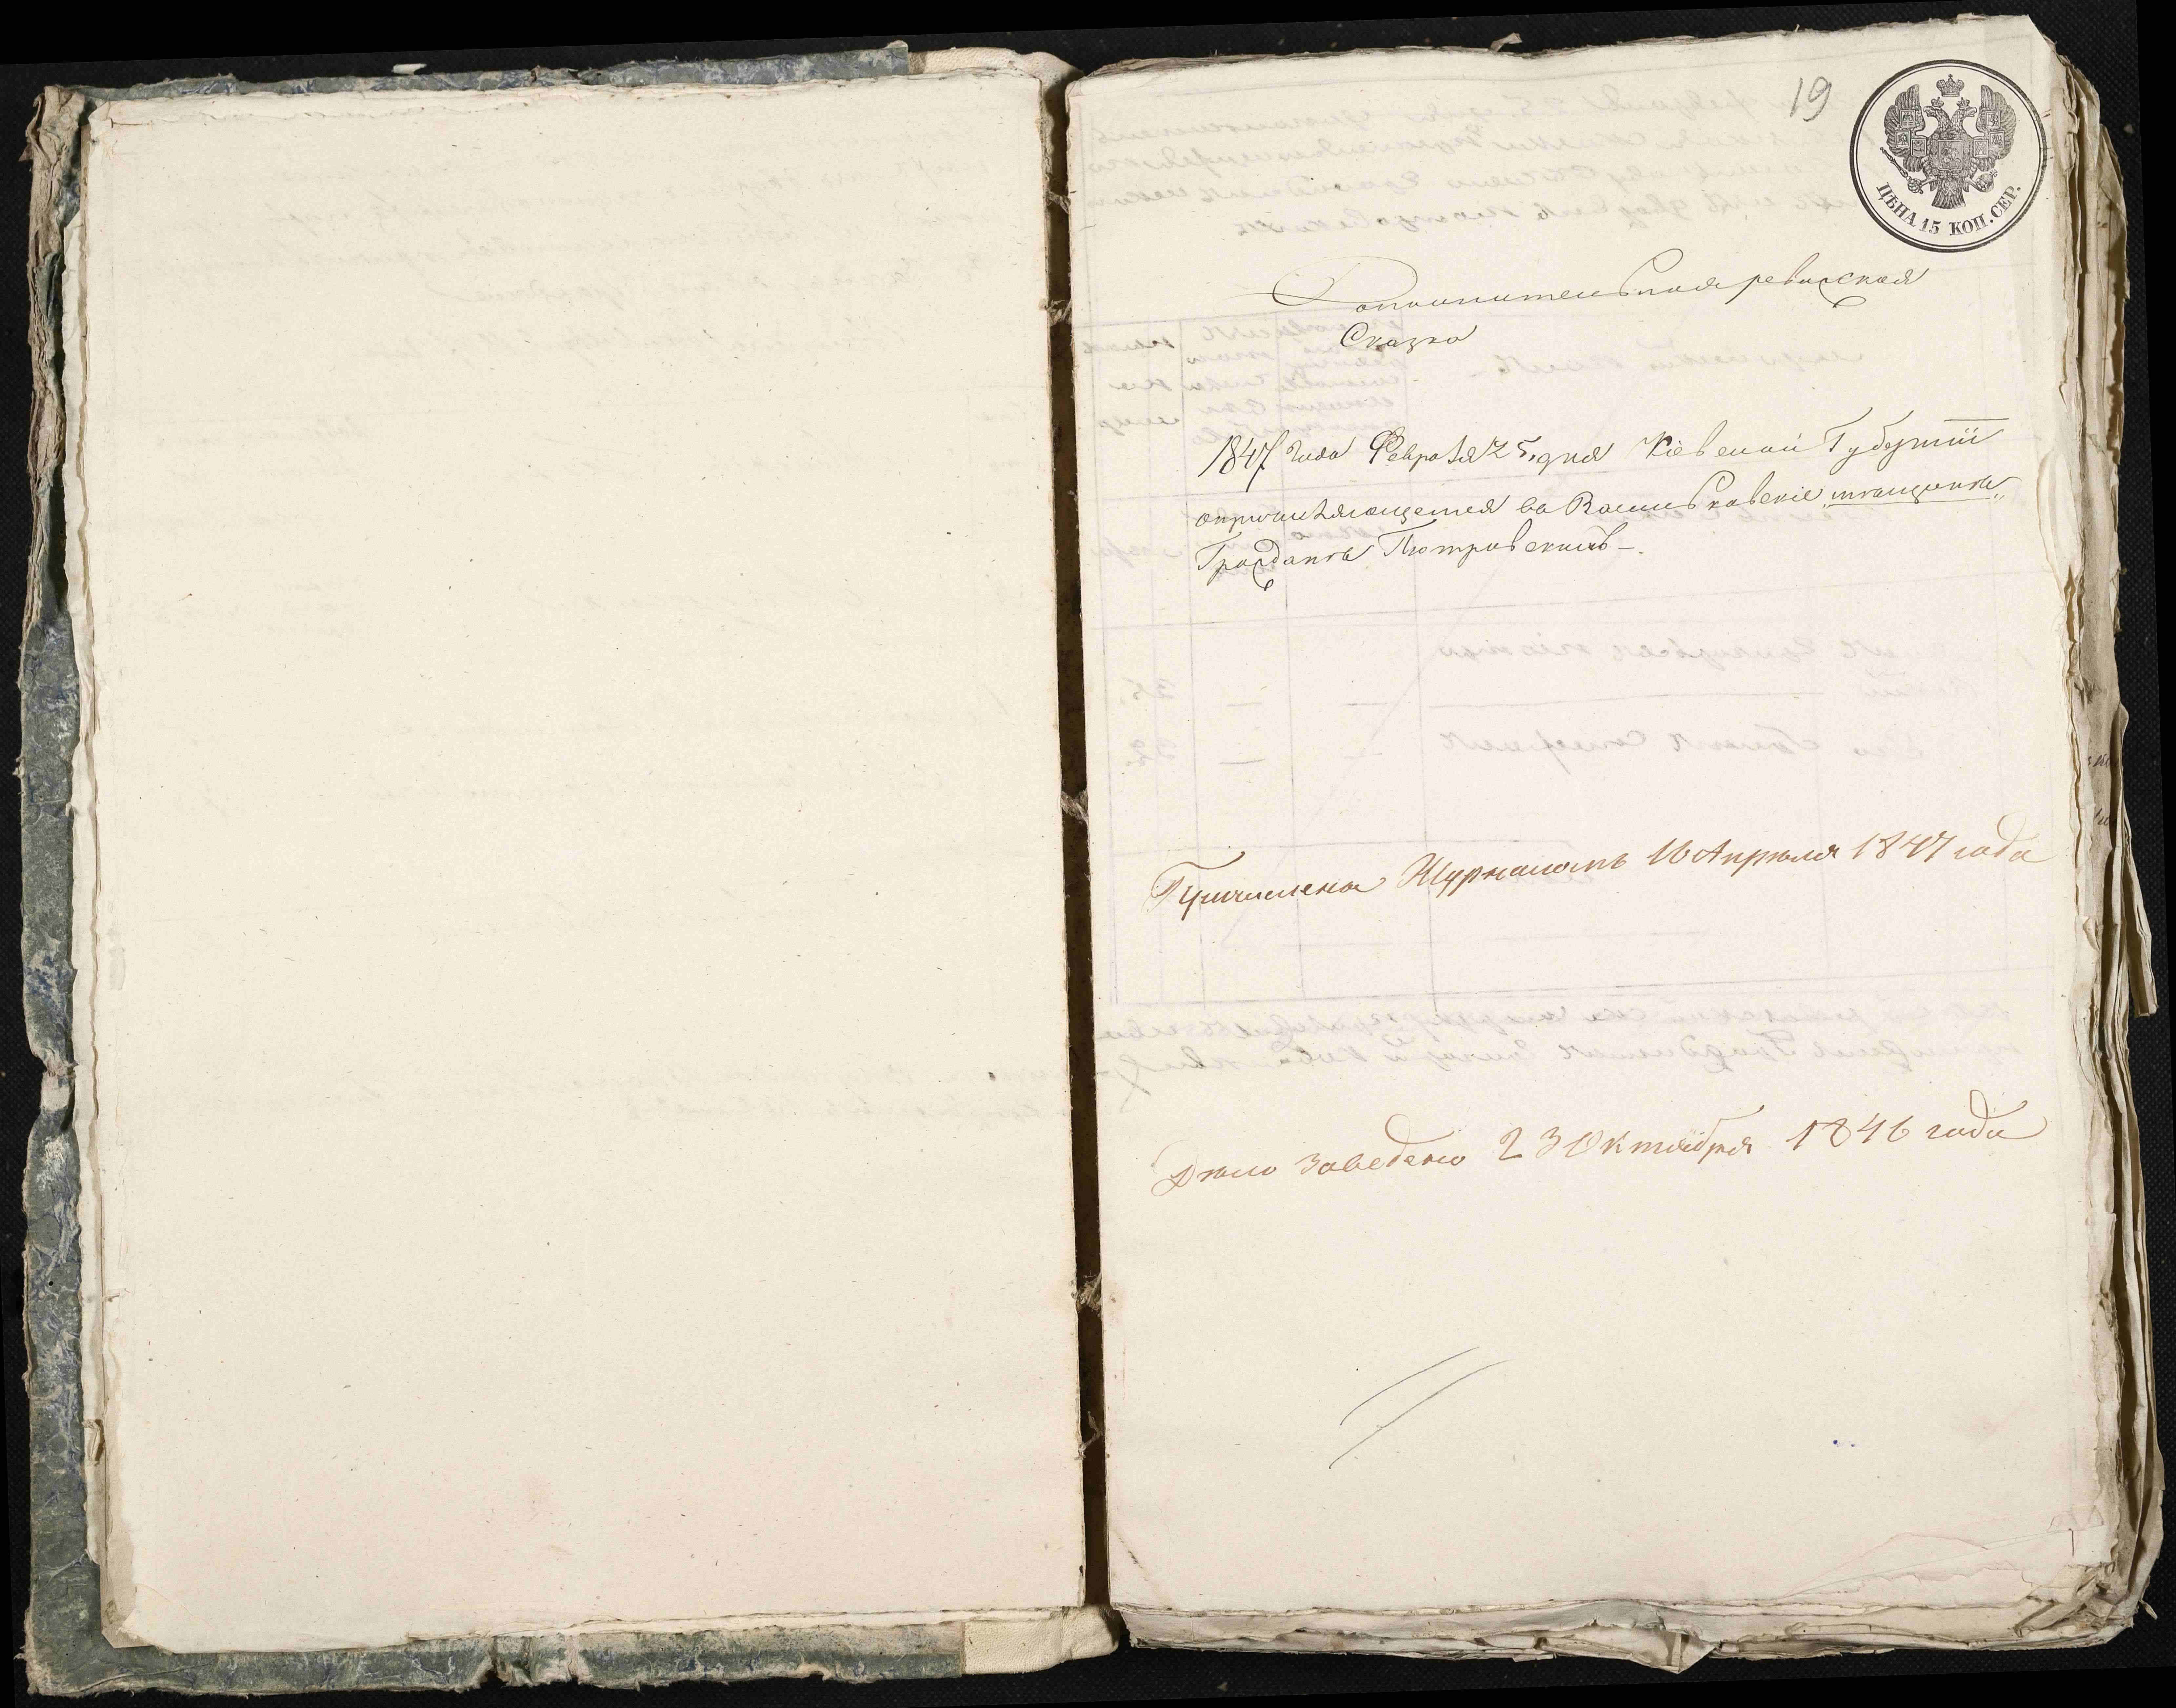 19
ЦѢНА 15 КОП. СЕР.
Дополнительная ревизская
Сказка
1847 года Февраля 25, дня Кіевской Губерніи
о причисляющемся въ Васильковскіе мѣщанина
Гражданкѣ Піотровскомъ —.
Причислена Журналомъ 16 Апрѣля 1847 года
Дѣло заведено 23 Октября 1846 года